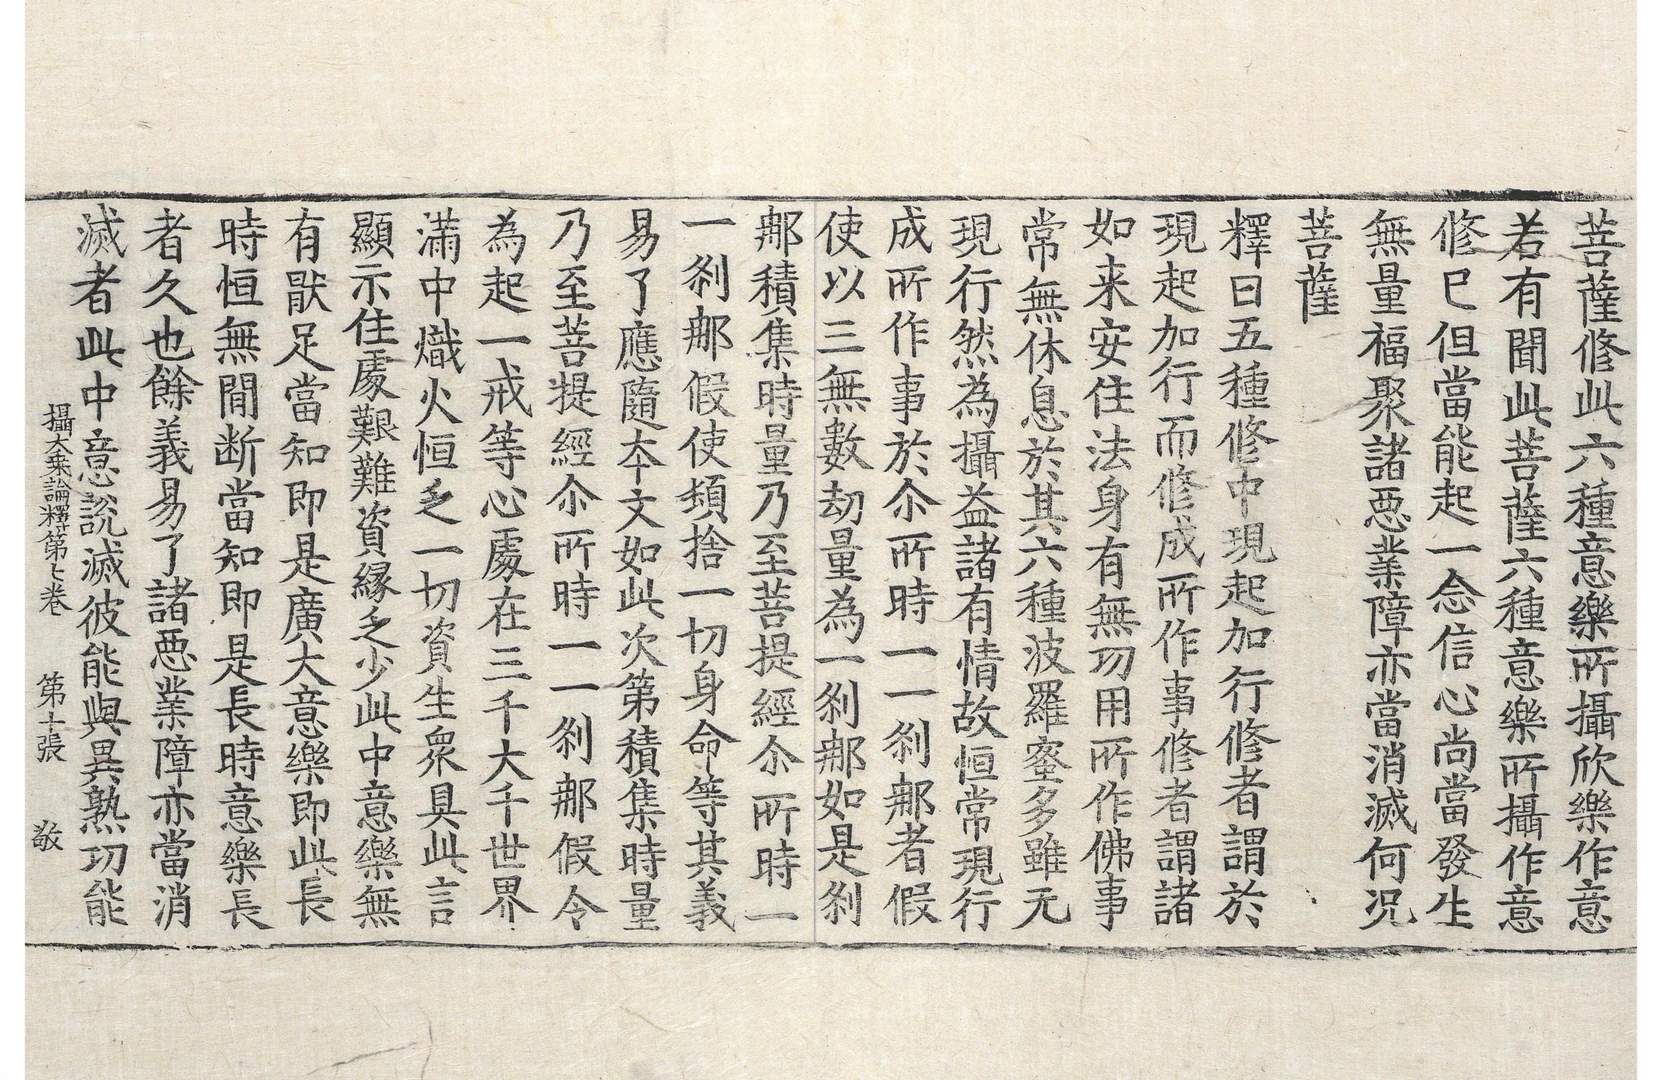 菩薩修此六種意樂所攝欣樂作意
若有聞此菩薩六種意樂所攝作意
修已但當能起一念信心尚當發生
無量福聚諸惡業障亦當消滅何況
菩薩
釋曰五種修中現起加行修者謂於
現起加行而修成所作事修者謂諸
如来安住法身有無功用所作佛事
常無休息於其六種波羅蜜多雖无
現行然為攝益諸有情故恒常現行
成所作事於尒所時一一刹那者假
使以三無數劫量為一刹那如是刹
那積集時量乃至菩提經尒所時一
一刹那假使頓捨一切身命等其義
易了應隨本文如此次第積集時量
乃至菩提經尒所時一一刹那假令
為起一戒等心處在三千大千世界
滿中熾火恒乏一切資生衆具此言
顯示住處艱難資緣乏少此中意樂無
有猒足當知即是廣大意樂即此長
時恒無間断當知即是長時意樂長
者久也餘義易了諸惡業障亦當消
滅者此中意說滅彼能與異熟功能
攝大乗論釋第七卷　第十張　敬